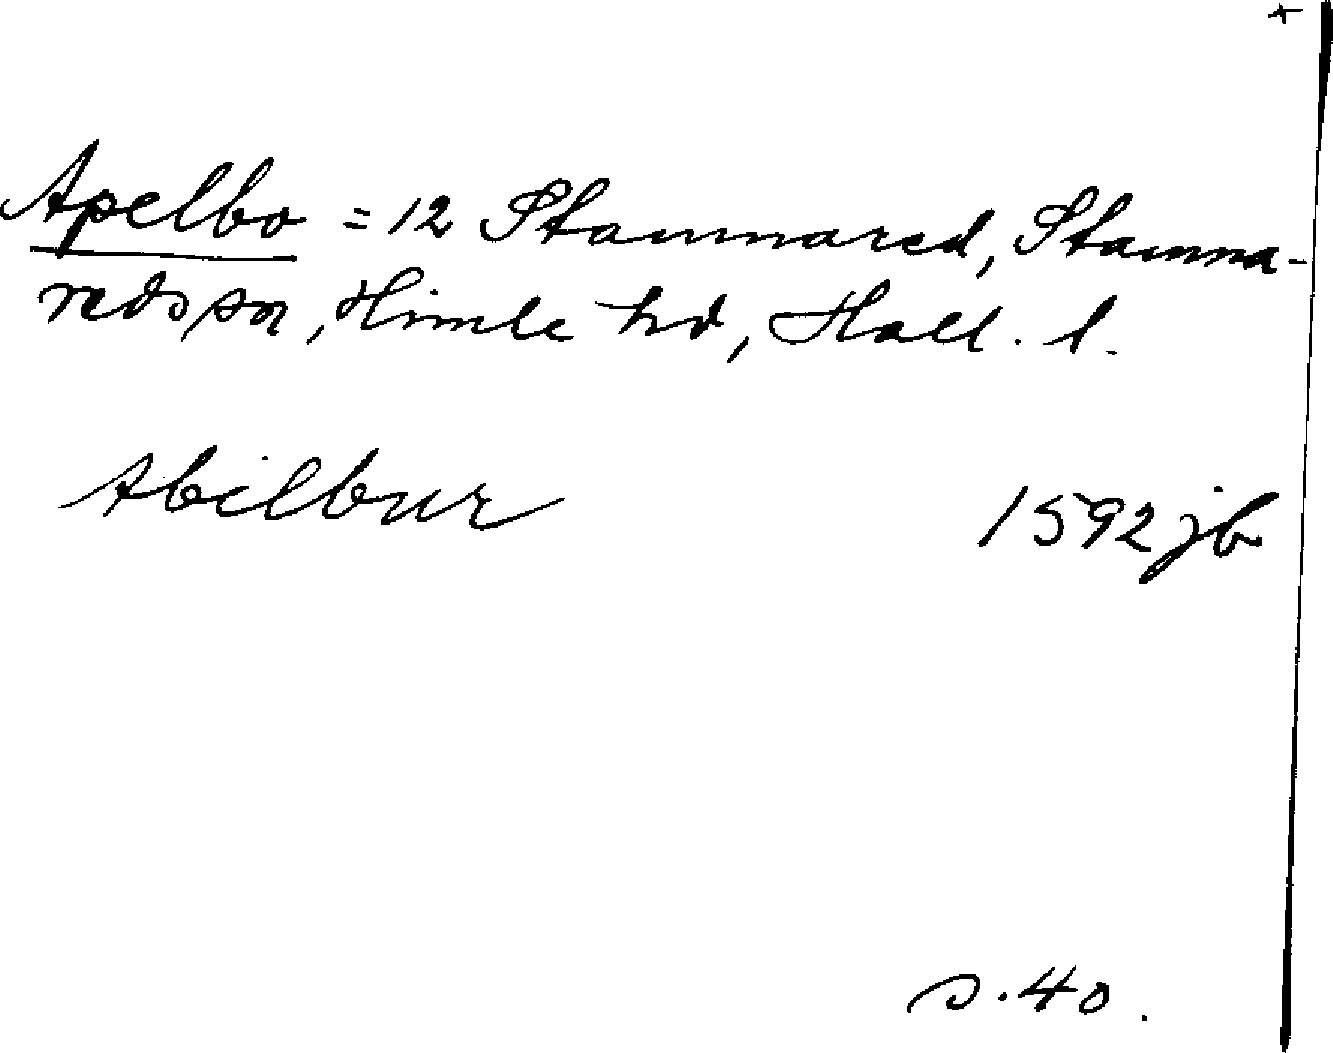 +
Apelbo = 12 Stammared, Stamna-
reds sn, Himle hd, Hall. l.
Abilbur 1592 jb
s. 40.